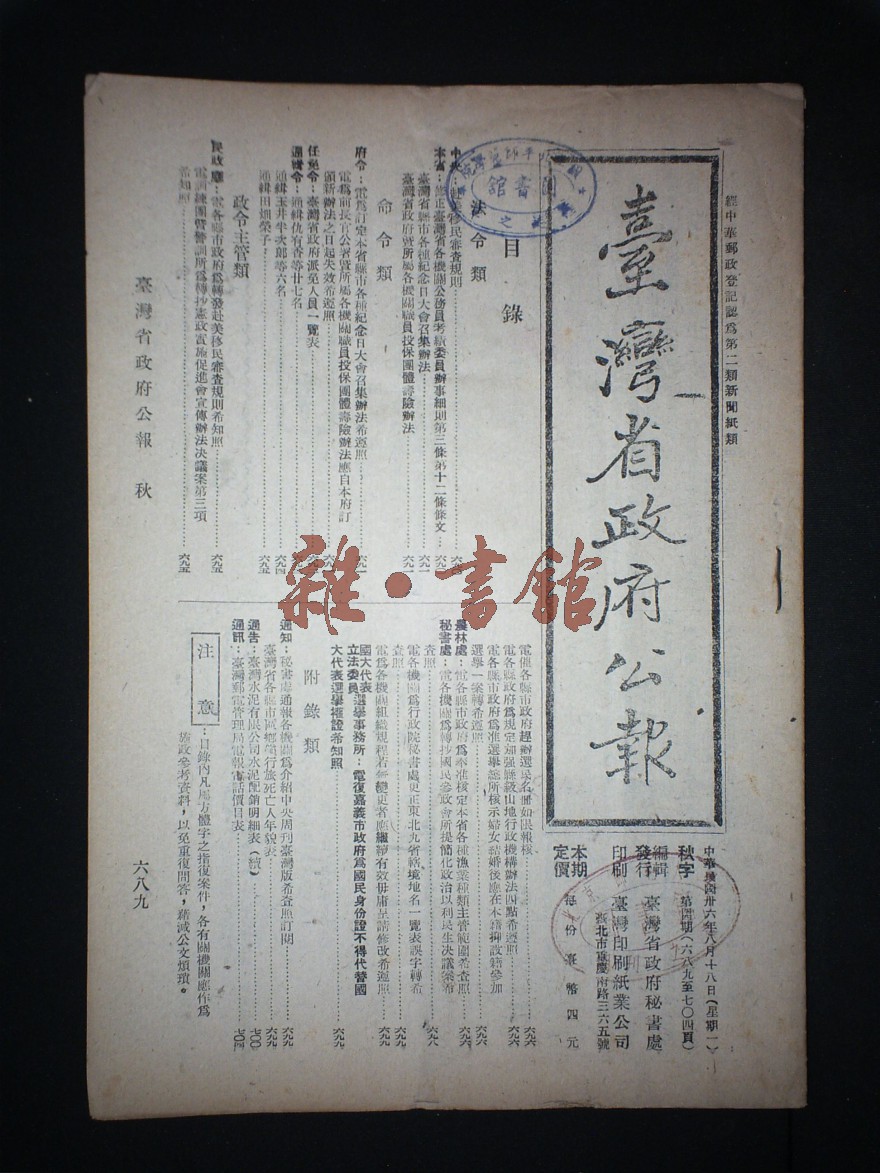 經中華郵政登記認爲第二類新聞紙類
臺灣省政府公報
中華民國卅六年八月十八日(星期一)
秋字 第四期(六八九至七〇四頁)
編輯
發行 臺灣省政府秘書處
印刷 臺灣印刷紙業公司
臺北市重慶南路三六五號
本期
定價 每份臺幣四元
目錄
法令類
移民審查規則
本省:修正臺灣省各機關公務員考績委員會辦事細則第三條第十二條條文
臺灣省縣市各種紀念日大會召集辦法 六九一
臺灣省政府暨所屬各機關職員投保團體壽險辦法 六九一
命令類
府令:電爲訂定本省縣市各種紀念日大會召集辦法希遵照 六九二
電爲前長官公署暨所屬各機關職員投保團體壽險辦法應自本府訂
頒新辦法之日起失效希遵照
任免令:臺灣省政府派免人員一覽表
通緝令:通緝仇有香等廿七名
通緝玉井半次郎等六名 六九四
通緝田畑榮子 六九五
政令主管類
民政廳:電各縣市政府爲轉發赴美移民審查規則希知照 六九五
電訓練團暨警訓所爲轉抄憲政實施促進會宣傳辦法决議案第三項
希知照 六九五
臺灣省政府公報 秋
電催各縣市政府趕辦選民名冊如限報核 六九六
電各縣政府爲規定加强縣級山地行政機構辦法四點希遵照 六九六
電各縣市政府爲准選舉總所核示婦女結婚後應在本籍抑設籍參加
選舉一案轉希遵照 六九六
農林處:電各縣市政府爲奉准核定本省各種漁業種類主管範圍希查照 六九六
秘書處:電各機關爲轉抄國民參政會所提簡化政治以利民生决議案希
查照
電各機關爲行政院秘書處更正東北九省轄境地名一覽表誤字轉希
查照
電爲各機關組織規程若無變更者應繼續有效毋庸呈請修改希遵照 六九九
國大代表
立法委員選舉事務所:電復嘉義市政府爲國民身份證不得代替國
大代表選舉權證希知照 六九九
附錄類
通知:秘書處通報各機關爲介紹中央周刊臺灣版希查照訂閱 六九九
臺灣省各縣市區鄉鎮行旅死亡人年貌表 六九九
通告:臺灣水泥有限公司水泥配銷明細表(續) 七〇〇
通訊:臺灣郵電管理局電報電話價目表 七〇四
注意:目錄內凡屬方體字之指復案件,各有關機關應作爲
施政參考資料,以免重復問答,藉減公文煩瑣。
六八九
圖書館
雜·書館